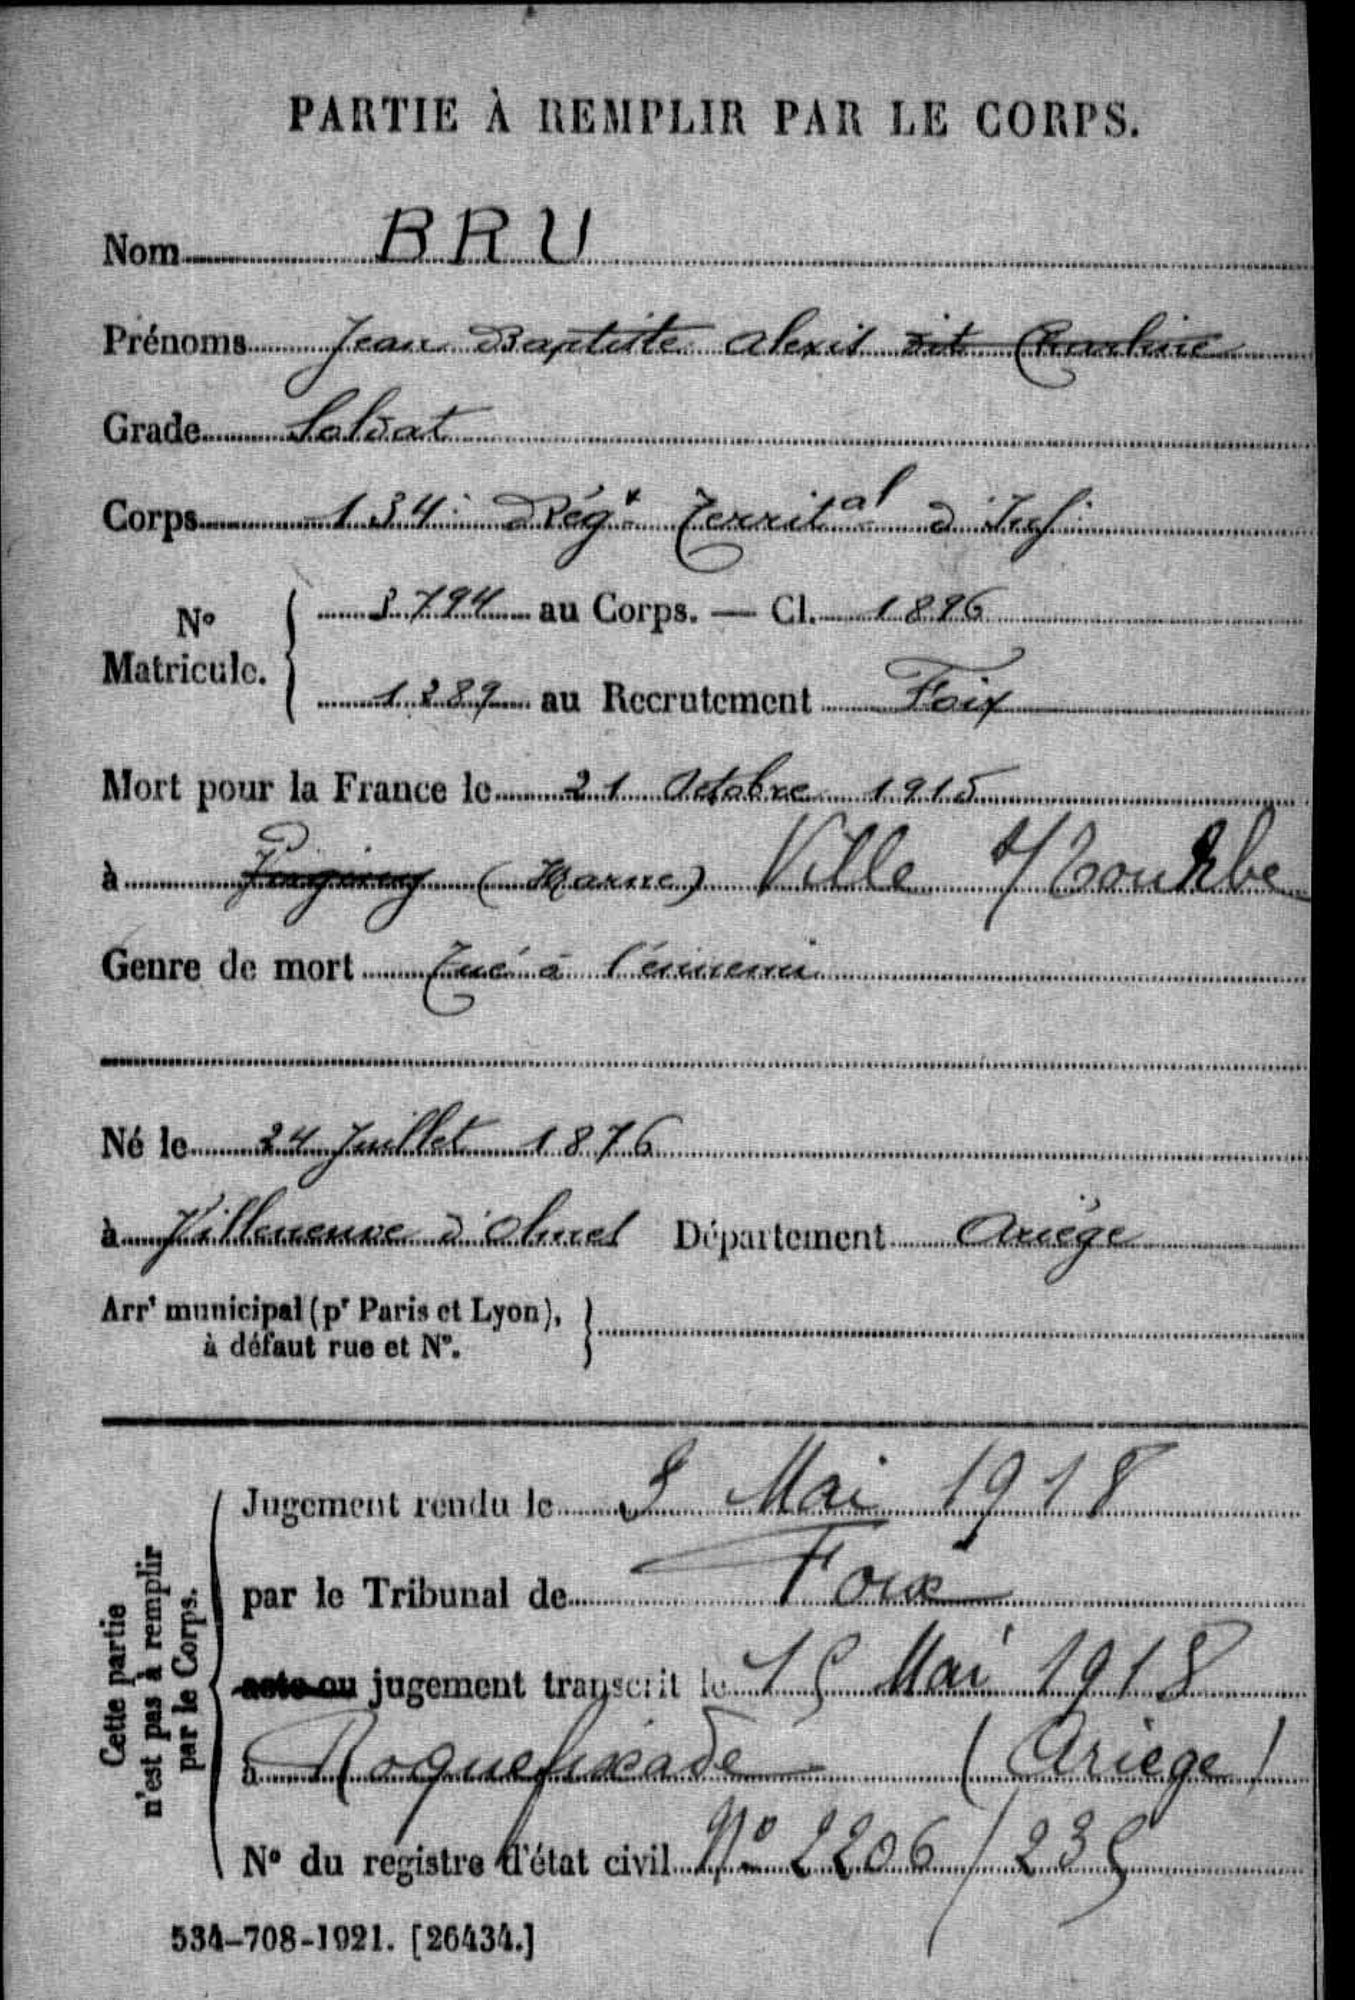 PARTIE À REMPLIR PAR LE CORPS.
Nom BRU
Prénoms Jean Baptiste Alexis dit
Grade Soldat
Corps 134e Régt Territal d'Inf
No Matricule. { 3794 au Corps. — Cl. 1896
1289 au Recrutement Foix
Mort pour la France le 21 Octobre 1915
à (Marne) Ville s/ Tourbe
Genre de mort Tué à l'ennemi
Né le 24 Juillet 1876
à Villeneuve d'Olmes Département Ariège
Arrt municipal (pr Paris et Lyon), }
à défaut rue et No.
Cette partie
n'est pas à remplir
par le Corps.
Jugement rendu le 8 Mai 1918
par le Tribunal de Foix
acte ou jugement transcrit le 15 Mai 1918
à Roquefixade (Ariège)
No du registre d'état civil No 2206/235
534-708-1921. [26434.]